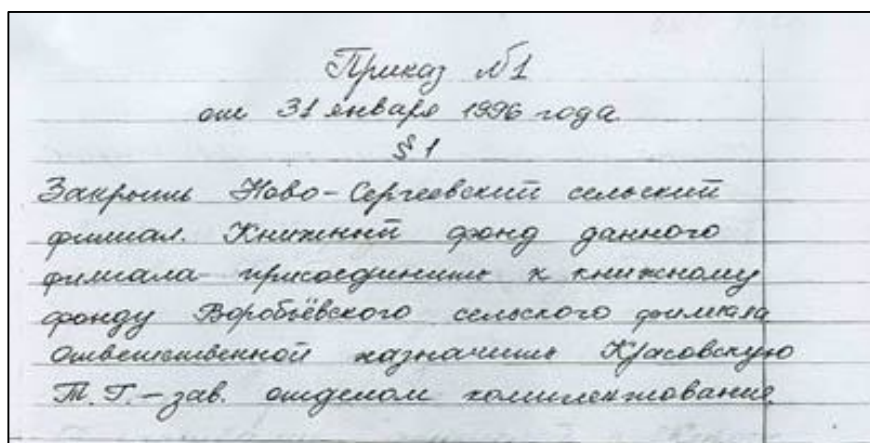 Приказ №1
от 31 января 1996 года.
§ 1
Закрыть Ново-Сергеевский сельский
филиал. Книжный фонд данного
филиала присоединить к книжному
фонду Воробьёвского сельского филиала
Ответственной назначить Красовскую
Т. Г. – зав. отделом комплектование.